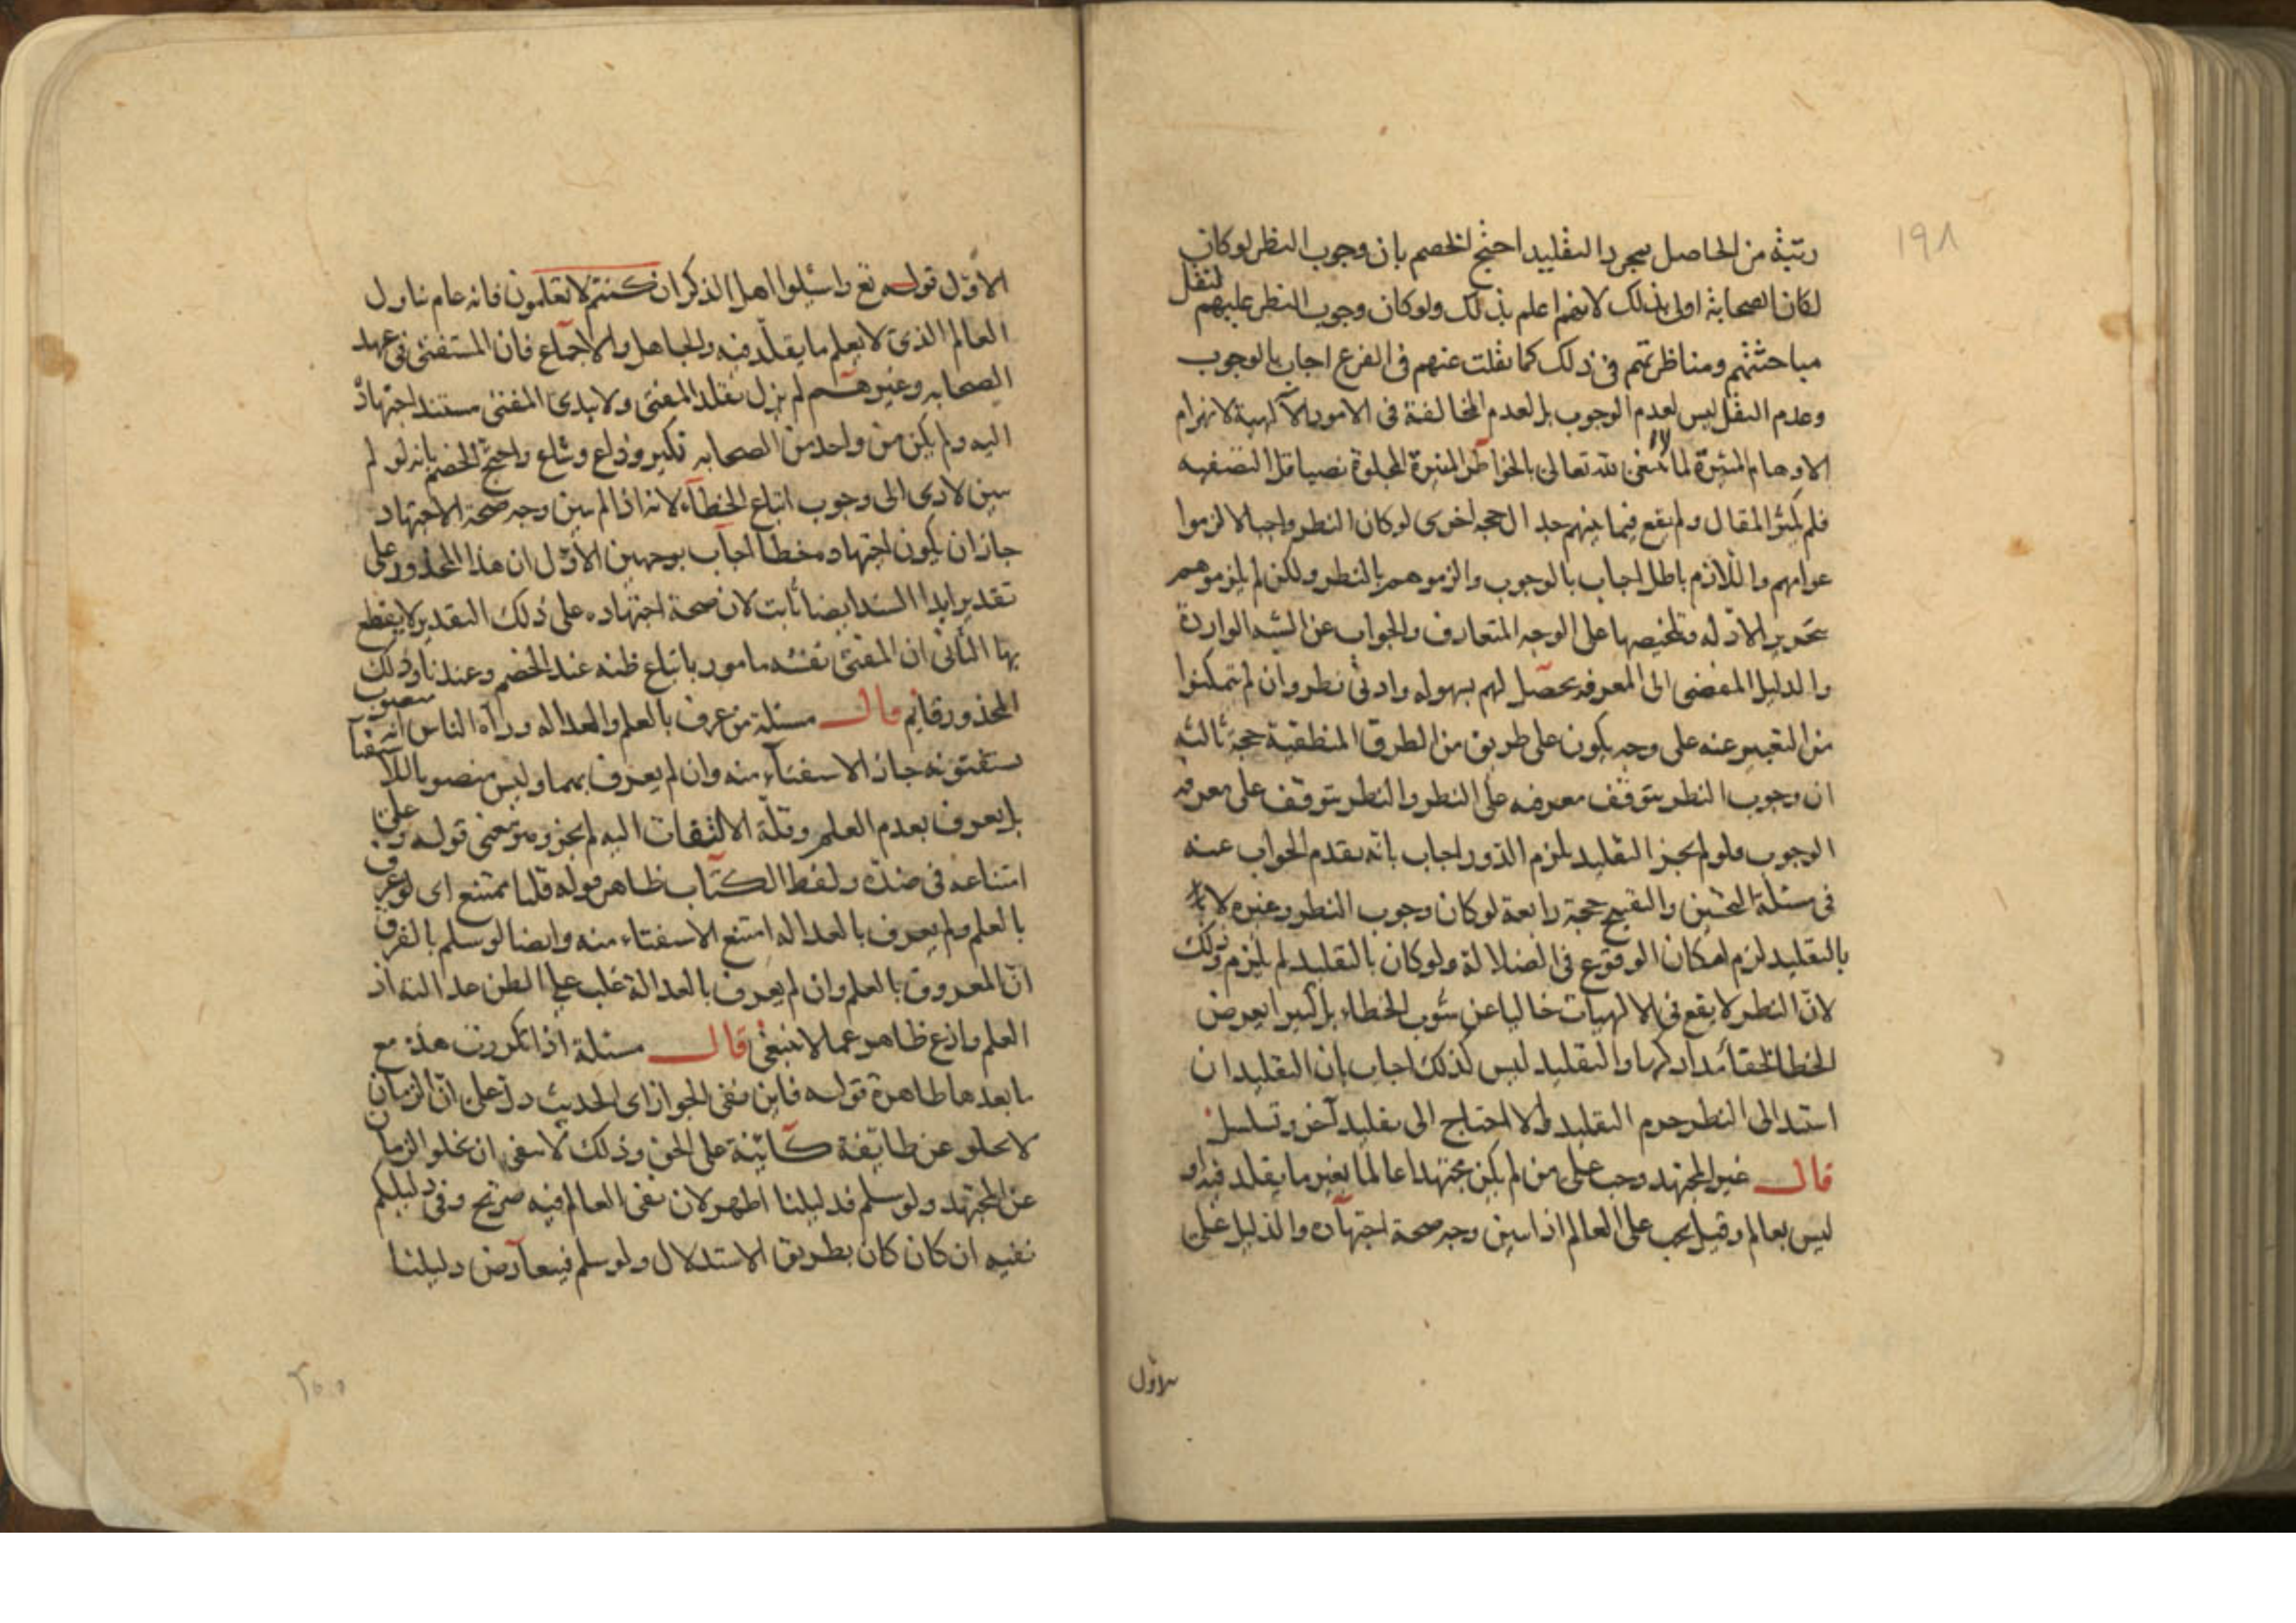 ١٩٨
رتبة من الحاصل بمجرد التقليد احتج الخصم بان وجوب النظر لو كان
لكان الصحابة اولى بذلك لانهم اعلم بذلك ولو كان وجوب النظر عليهم لنقل
مباحثتهم ومناظرتهم فى ذلك كما نقلت عنهم فى الفرع اجاب بالوجوب
وعدم النقل ليس لعدم الوجوب بل لعدم المخالفة فى الامور الالهية لانهزام
الاوهام المثيرة لما لا ينبغى لله تعالى بالخواطر المنيرة المجلوة
فلم يكثر المقال ولم يقع فيما بينهم جدال حجة اخرى لو كان النظر واجبا لالزموا
عوامهم واللازم باطل اجاب بالوجوب والزموهم بالنظر ولكن لم يلزموهم
بتحرير الادله وتلخيصها على الوجه المتعارف والجواب عن الشبه الواردة
والدليل المفضى الى المعرفه يحصل لهم بسهوله وادنى نظر وان لم يتمكنوا
من التعبير عنه على وجه يكون على طريق من الطرق المنطقية حجة ثالثه
ان وجوب النظر يتوقف معرفته على النظر والنظر يتوقف على معرفه
الوجوب فلو لم يجز التقليد يلزم الدور اجاب بانه تقدم الجواب عنه
فى مسئلة التحسين والتقبيح حجة رابعة لو كان وجوب النظر وغيره لا
بالتقليد لزم امكان الوقوع فى الضلالة ولو كان بالتقليد لم يلزم ذلك
لان النظر لا يقع فى الالهيات خاليا عن شوب الخطاء بل كثيرا يعرض
الخطا لخفاء مداركها والتقليد ليس كذلك اجاب بان التقليد ان
استند الى النظر حرم التقليد والا احتاج الى تقليد آخر وتسلسل
قال غير المجتهد وجب على من لم يكن مجتهدا عالما بغير ما يقلد فيه او
ليس بعالم وقيل يجب على العالم اذا تبين وجه صحة اجتهاده والدليل على
الاول
الاول قوله تع واسئلوا اهل الذكر ان كنتم لا تعلمون فانه عام تناول
العالم الذى لا يعلم ما يقلد فيه والجاهل والاجماع فان المستفتى فى عهد
الصحابه وغيرهم لم يزل يقلد المفتى ولا يبدى المفتى مستند اجتهاد
اليه ولم يكن من واحد من الصحابه نكير وذاع وشاع واحتج الخصم بانه لو لم
يبين لادى الى وجوب اتباع الخطاء لانه اذا لم يبين وجه صحة الاجتهاد
جاز ان يكون اجتهاده خطأ اجاب بوجهين الاول ان هذا المحذور على
تقدير ابداء السند ايضا ثابت لان صحة اجتهاده على ذلك التقدير لا يقطع
بها الثانى ان المفتى نفسه مامور باتباع ظنه عند الخصم وعندنا وذلك
المحذور قايم قال مسئلة من عرف بالعلم والعداله ورآه الناس انه منصوب
يستفتونه جاز الاستفتاء منه وان لم يعرف بهما وليس منصوبا للاستفتاء
بل يعرف بعدم العلم وقلة الالتفات اليه لم يجز ومر معنى قوله وعلى
امتناعه فى ضده ولفظ الكتاب ظاهر قوله قلنا يمتنع اى لو عرف
بالعلم ولم يعرف بالعداله امتنع الاستفتاء منه وايضا لو سلم بالفرق
ان المعروف بالعلم وان لم يعرف بالعدالة غلب على الظن عدالته اذ
العلم وازع ظاهر عما لا ينبغى قال مسئلة اذا تكررت هذه مع
ما بعدها ظاهرة قوله فاين نفى الجواز اى الحديث دل على ان الزمان
لا يخلو عن طايفة كاينة على الحق وذلك لا ينفى ان يخلو الزمان
عن المجتهد ولو سلم فدليلنا اظهر لان نفى العالم فيه صريح وفى دليلكم
نفيه ان كان كان بطريق الاستدلال ولو سلم فيتعارض دليلنا